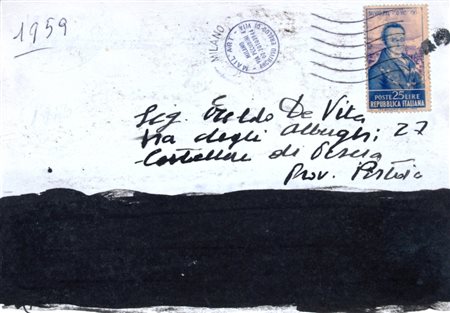 1959
MILANO
MAIL ART
POSTE 25 LIRE
REPUBBLICA ITALIANA
Sig. Eraldo De Vita
Via degli Alberghi 27
Castellare di Pescia
Prov. Pistoia